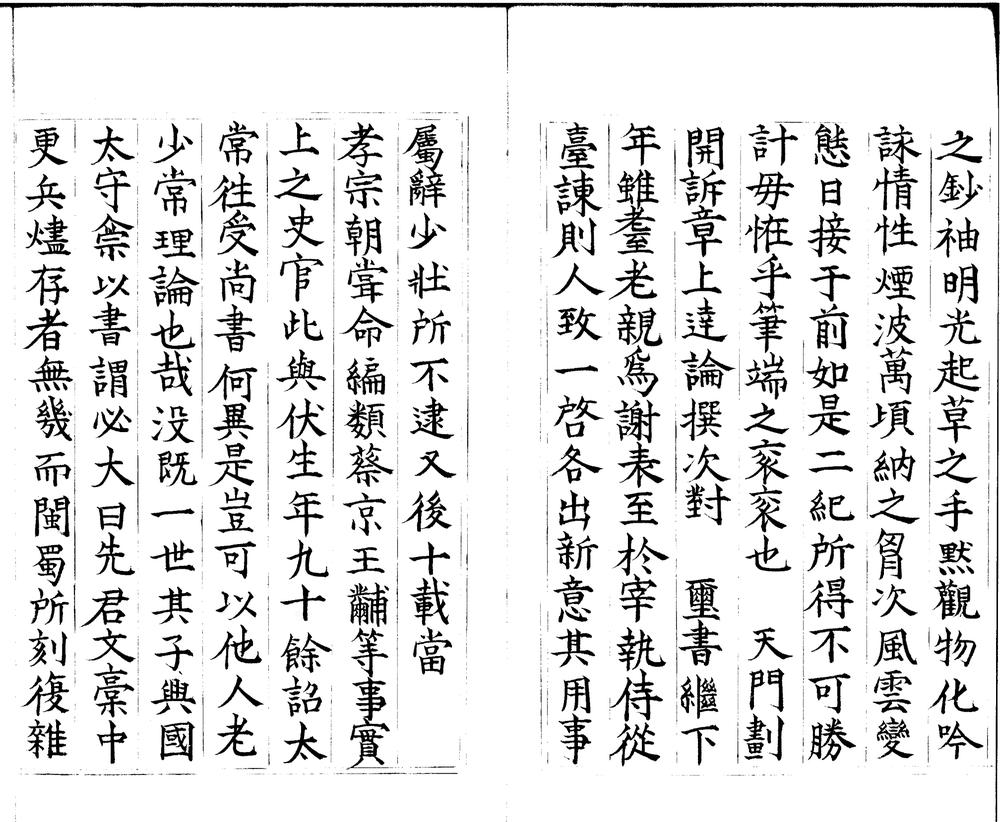 之鈔袖明光起草之手黙觀物化吟
詠情性煙波萬頃納之胷次風雲變
態日接于前如是二紀所得不可勝
計毋恠乎筆端之衮衮也　天門劃
開訴章上達論撰次對　璽書繼下
年雖耋老親爲謝表至於宰執侍從
臺諫則人致一啓各出新意其用事
屬辭少壯所不逮又後十載當
孝宗朝甞命編類蔡京王黼等事實
上之史官此與伏生年九十餘詔太
常徃受尚書何異是豈可以他人老
少常理論也哉没既一世其子興國
太守龠以書謂必大曰先君文稾中
更兵燼存者無幾而閩蜀所刻復雜